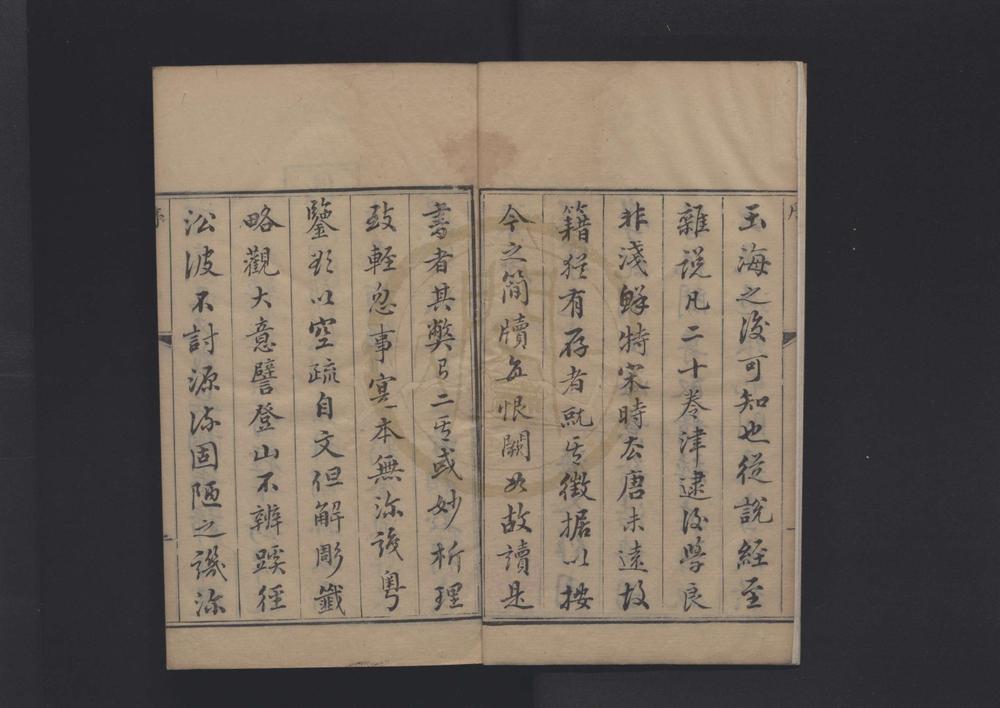 玉海之後可知也從說經至
雜說凡二十卷津逮後學良
非淺鮮特宋時去唐未遠故
籍猶有存者就其徵据以按
今之簡牘每恨闕如故讀是
書者其弊有二其或妙析理
致輕忽事實本無深詣粤
鑒欲以空疏自文但解彫籤
略觀大意譬登山不辨蹊徑
沿波不討源流固陋之譏深
序